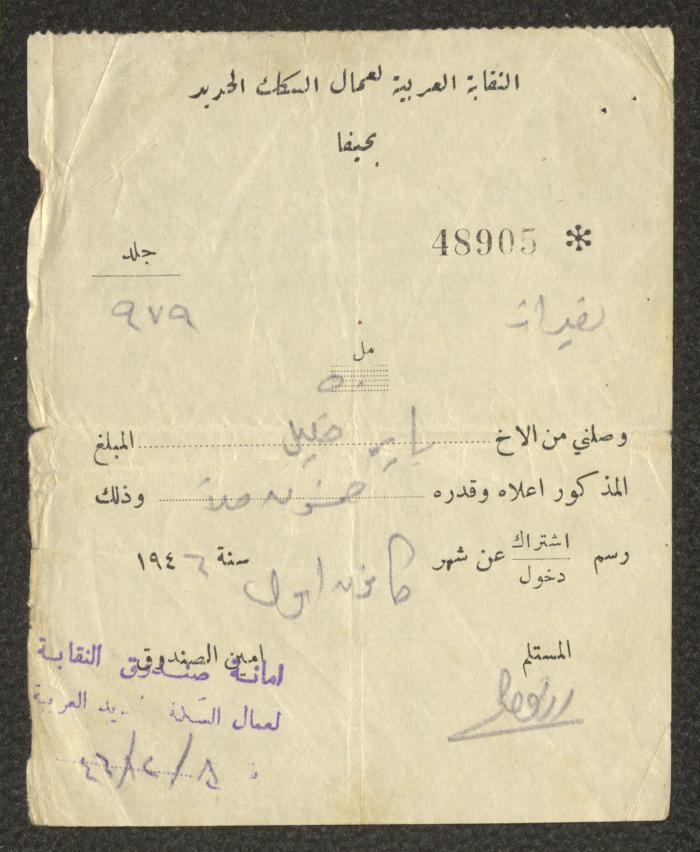 النقابة العربية لعمال السكك الحديد
بحيفا
48905 *
جلد
٩٧٩
مل
٥٠
وصلني من الاخ خليل المبلغ
المذكور اعلاه وقدره خمسون وذلك
رسم اشتراك
دخول
عن شهر كانون اول سنة ١٩٤٦
المستلم
امين الصندوق
امانة صندوق النقابة
لعمال العربية